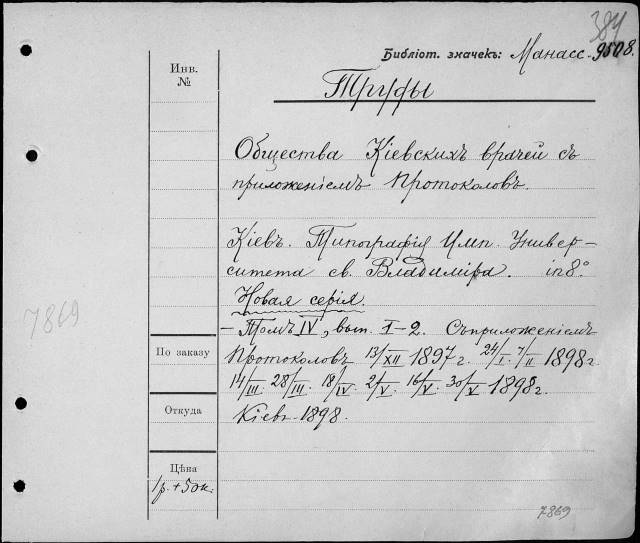 384
Библіот. значекъ: Манасс. 9508.
Инв.
№
Труды
Общества Кіевскихъ врачей съ
приложеніемъ Протоколовъ.
Кіевъ. Типографія Имп. Универ-
ситета св. Владиміра. in 8°
Новая серія.
- Томъ IV, вып. I-2. Съ приложеніемъ
Протоколовъ 13/XII 1897 г. 24/I. 7/II 1898 г.
14/III. 28/III. 18/IV. 2/V. 16/V. 30/V 1898 г.
Кіевъ 1898.
7869
По заказу
Откуда
Цѣна
1 р. + 50 к.
7869